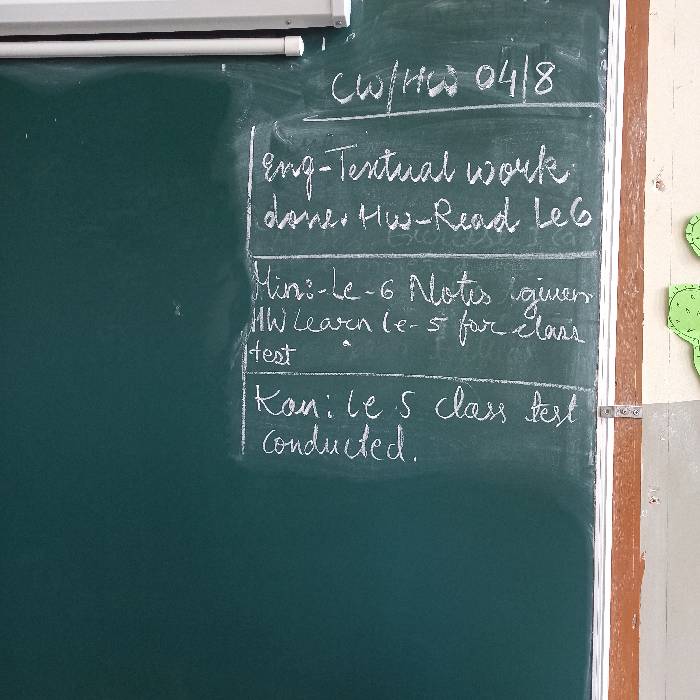 CW/HW 04/8
Eng-Textual work
done. HW-Read Le6
Hin:-Le-6 Notes given
HW Learn le-5 for class
test
Kan: le 5 class test
conducted.